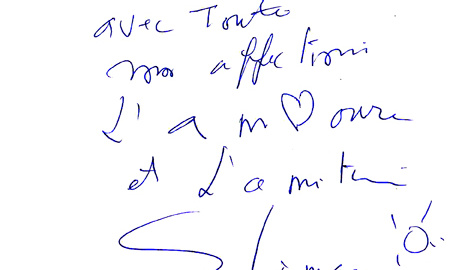 avec Toute
mon affection
L'am♡oure
et L'amitui